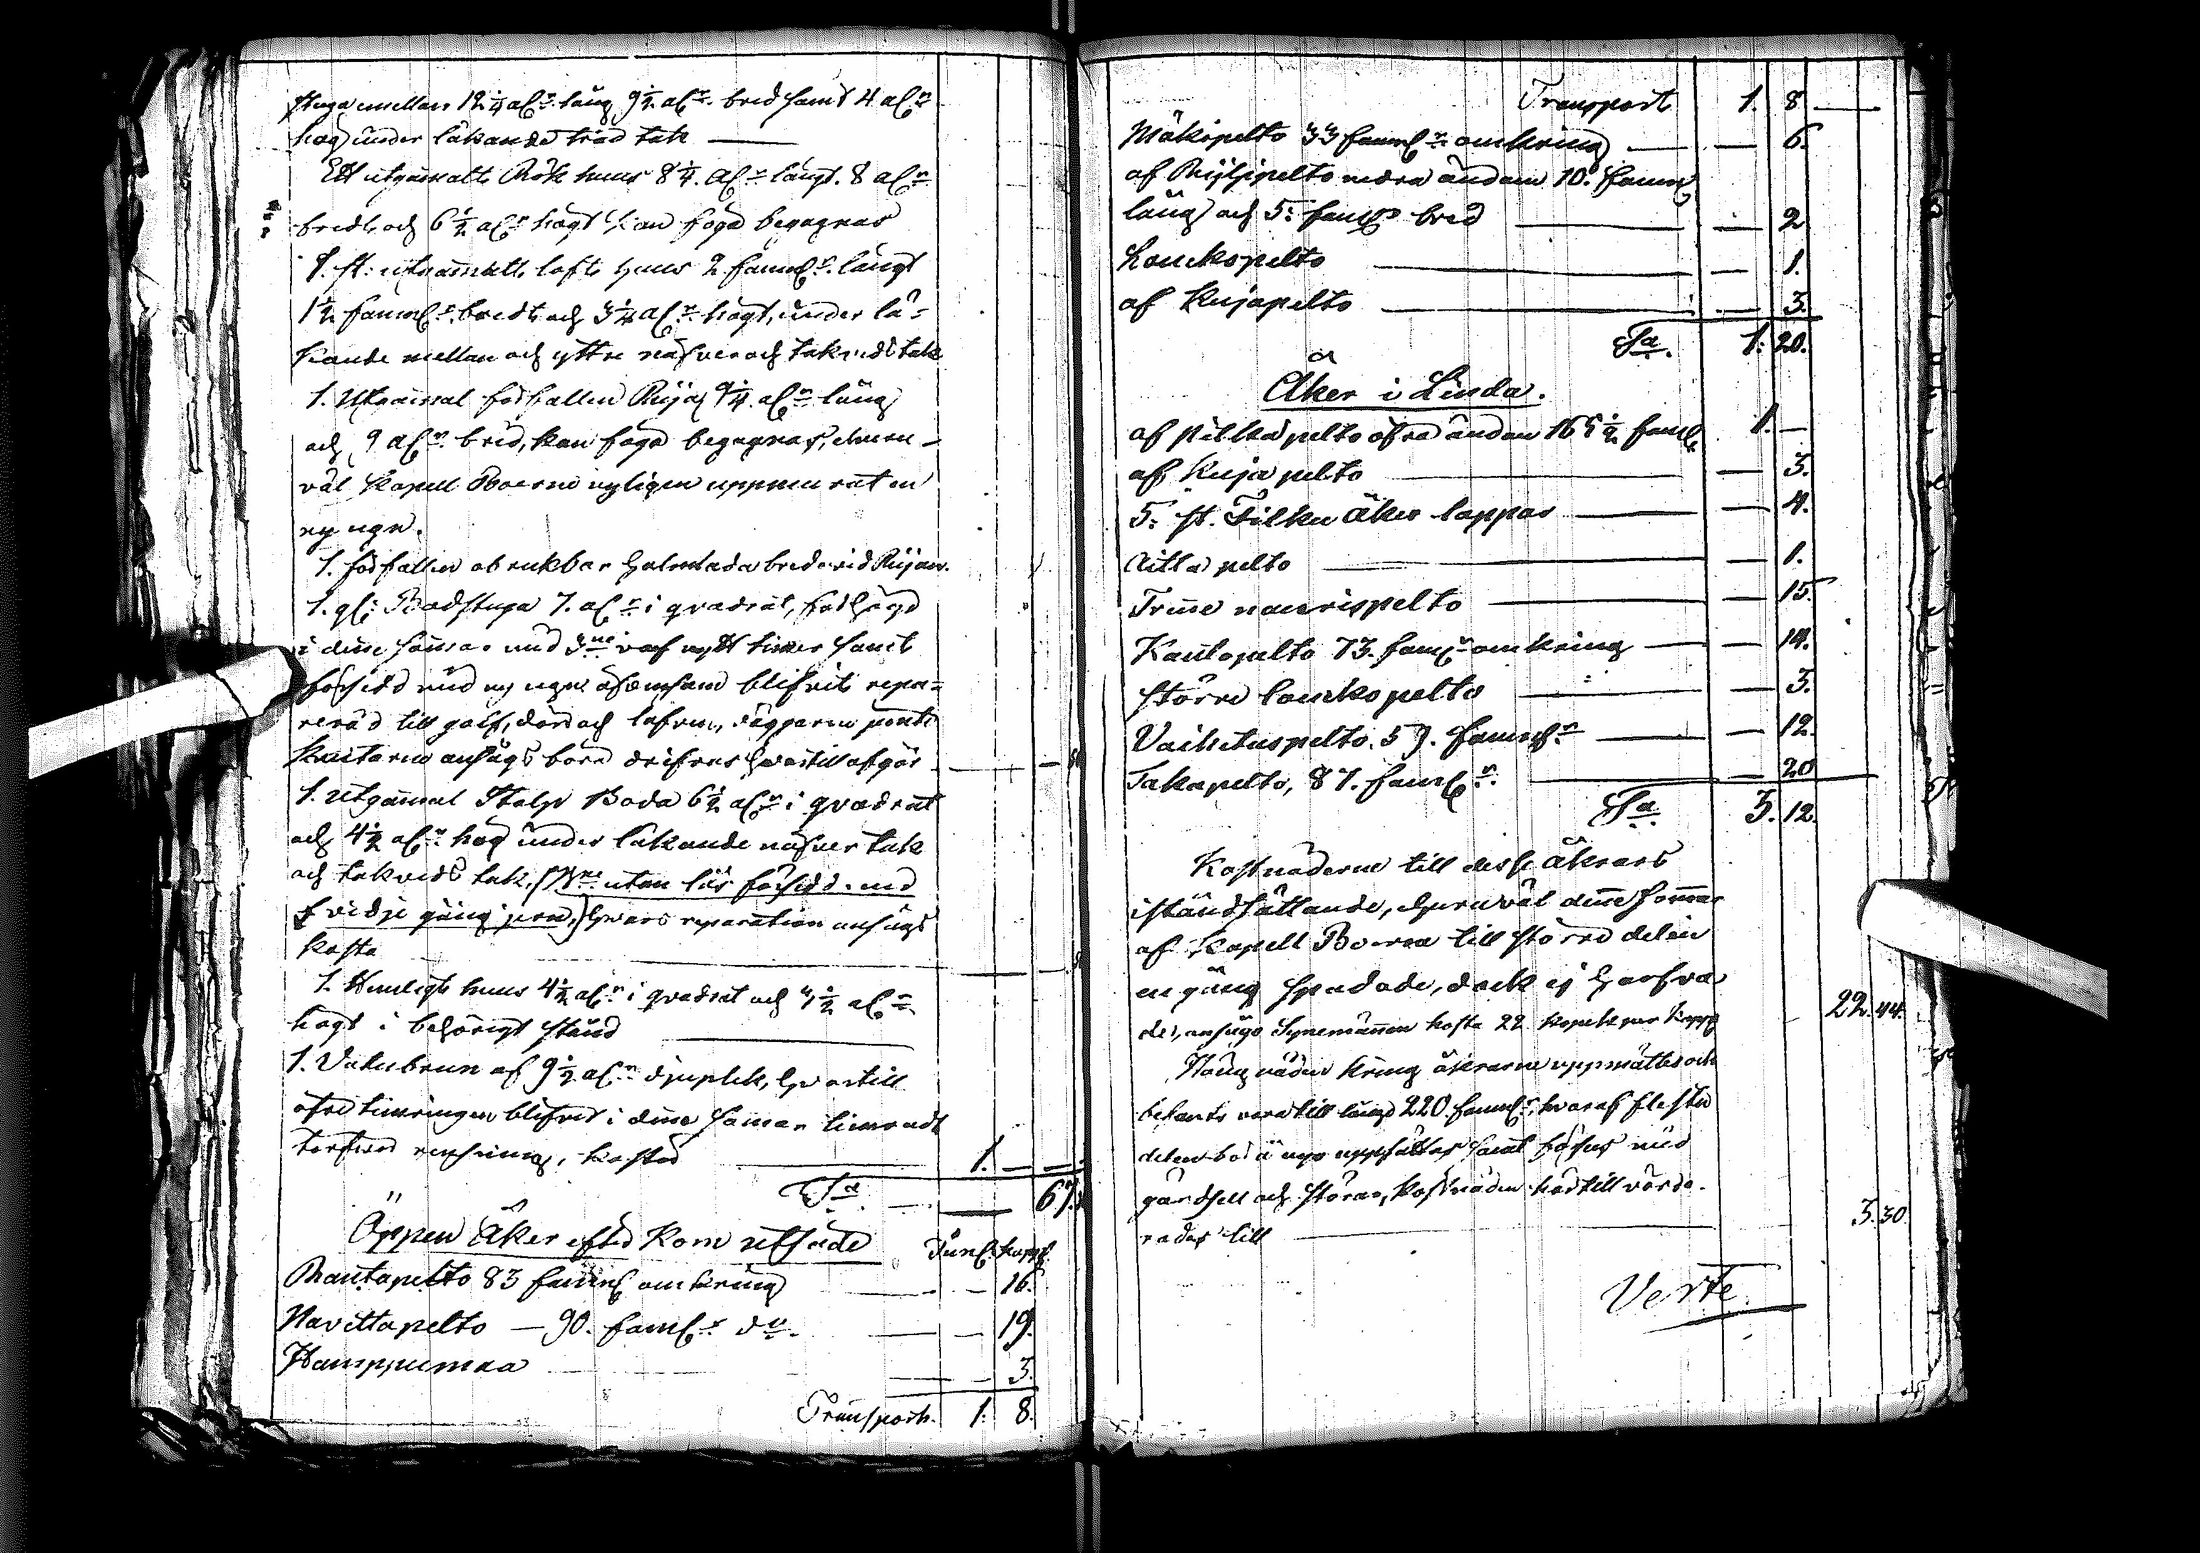 stuga emellan 12 1/4 aln:r lång 9 1/2 aln:r bred samt 4 aln:r
hög under läkande träd tak —
Ett utgammalt Kök huus 8 1/4. Aln:r långt. 8 aln:r
bredt och 6 1/2 aln:r högt kan föga begagnas
1. st: utgammalt lofts huus 2 famnr:r långt
1 1/2 famnr:r bredt och 3 1/4 aln:r högt, under lä-
kande mellan och yttre näfver och takveds tak
1. Utgammal förfallen Rija 9 1/4. aln:r lång
och 9 aln:r bred, kan föga begagnas, ehuru-
väl Kapell Boerne nyligen uppmurat en
ny ugn.
1. förfallen obrukbar Halmlada bredevid Rijan.
1. gl: Badstuga 7. aln:r i qvadrat, förhögd
i denne sommar med 3:ne varf nytt timmer samt
försedd med ny ugn äfvensom blifvit repa-
rerad till golf, dörr och lafven,
anságs böra drifvas hvartill åtgår
1. utgammal Stolp Boda 6 1/2 aln:r i qvadrat
och 4 1/2 aln:r hög under läkande näfver tak
och takveds tak, utan lås försedd med
gång jern, hvars reparation ansågs
kosta
1. Hemligt huus 4 1/2 aln:r i qvadrat och 4 1/2 aln:r
högt i behörigt stånd
1. Vatubrun af 9 1/2 aln:r djuplek, hvartill
öfre timringen blifvit i denne sommar timradt
tarfvar rensning, kostar 1. — —
S:a — 67.
Öppen Åker efter Korn utsäde Tunl: kappl
Rantapelto 83 famnr omkring — 16.
Navettapelto — 90. famnr:r d:o — 19.
Hamppumaa — 3.
Transport. 1. 8.
Transport 1. 8 —
Mäkipelto 33 famnr:r omkring — 6.
af nedra ändam 10. famnr
lång och 5: famnr:r bred — 2
Louckopelto — 1.
af Kujapelto — 3.
S:a. 1. 20.
Åker i Linda.
af pelto öfra ändan 165 1/2 famnr 1. —
af Kuja pelto — 3.
5: st. Tilku åker lappar — 4.
Aitta pelto — 1.
naurispelto — 15.
Kautopelto 73. famnr:r omkring — 14.
större louckopelto — 3.
Vaihetuspelto. 57. famnr:r — 12.
Takapelto, 87. famnr:r. — 20
S:a. 3. 12.
Kostnaderne till desse åkrars
iståndsättande, ehuruväl denne sommar
af Kapell Boerne till större delen
en gång spadade, dock ej harfva-
de, ansågo Synemännen kosta 22 kopek per kapp 22. 44.
Hängnaden kring åkrarne uppmättes och
befants vara till längd 220 famnr:r, hvaraf flesta
delen bör å nyo uppsättas samt förses med
gärdsell och störar, kostnaden härtill värde-
rades till — 3. 30.
Verte